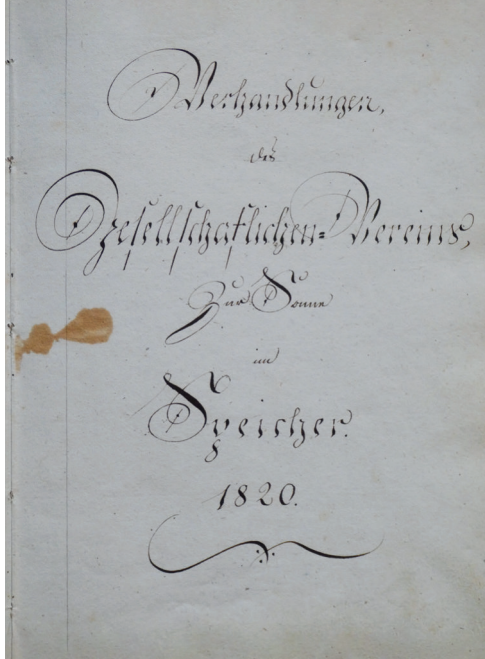 Verhandlungen,
des
Gesellschaftlichen=Vereins,
Zur Sonne
im
Speicher.
1820.